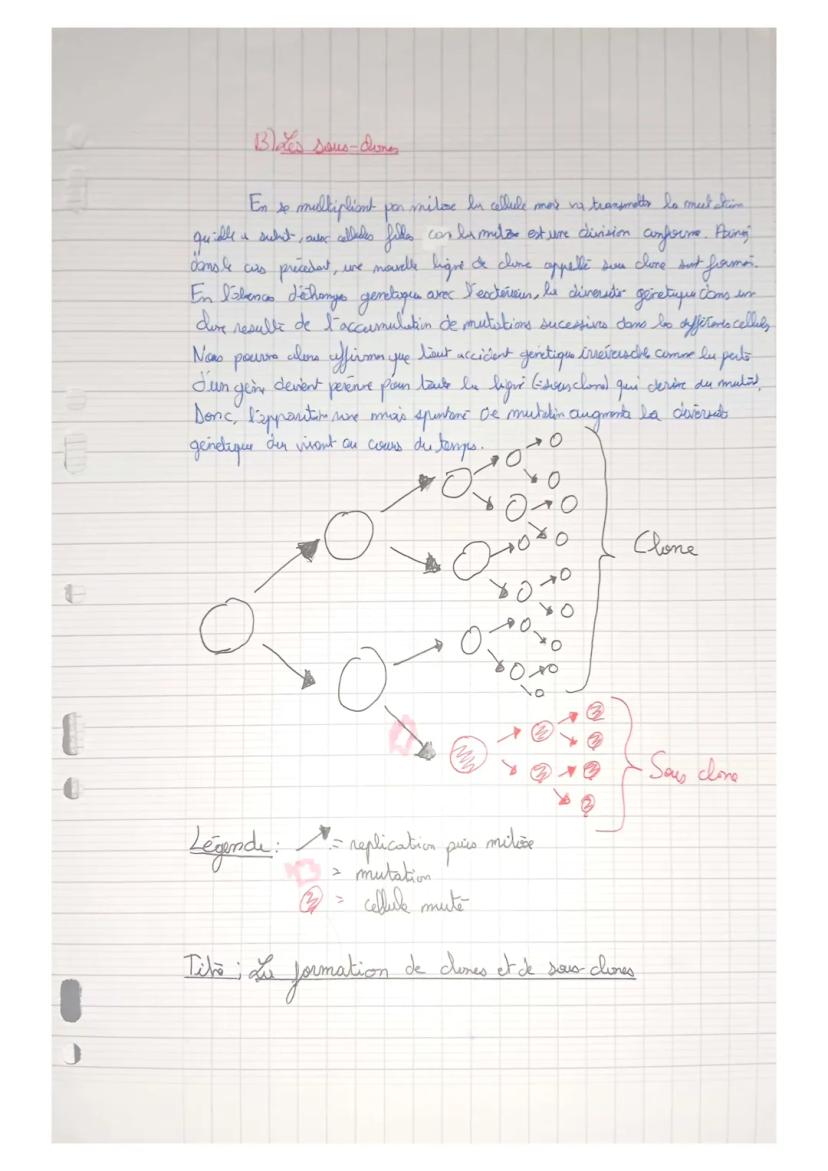 B) Les sous-clones
En se multipliant par mitose la cellule mère va transmettre la mutation
qu'elle a subit, aux cellules filles car la mitose est une division conforme. Ainsi,
dans le cas précédant, une nouvelle ligné de clone appellé sous clone sont formés.
En l'absence d'échanges génétiques avec l'extérieur, la diversité génétique dans un
clone resulte de l'accumulation de mutations sucessives dans les différentes cellules
Nous pouvons alors affirmer que tout accident génétique irréversible comme la perte
d'un gène devient pérenne pour toute la ligné (=sous clone) qui derive du mutant.
Donc, l'apparition rare mais spontané de mutation augmente la diversité
génétique du vivant au cours du temps.
Clone
Sous clone
Légende : = replication puis mitose
= mutation
= cellule muté
Titre : La formation de clones et de sous-clones